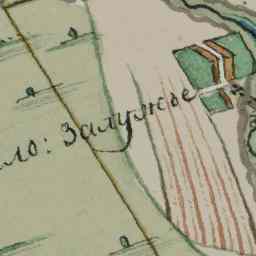 ло: Залужье